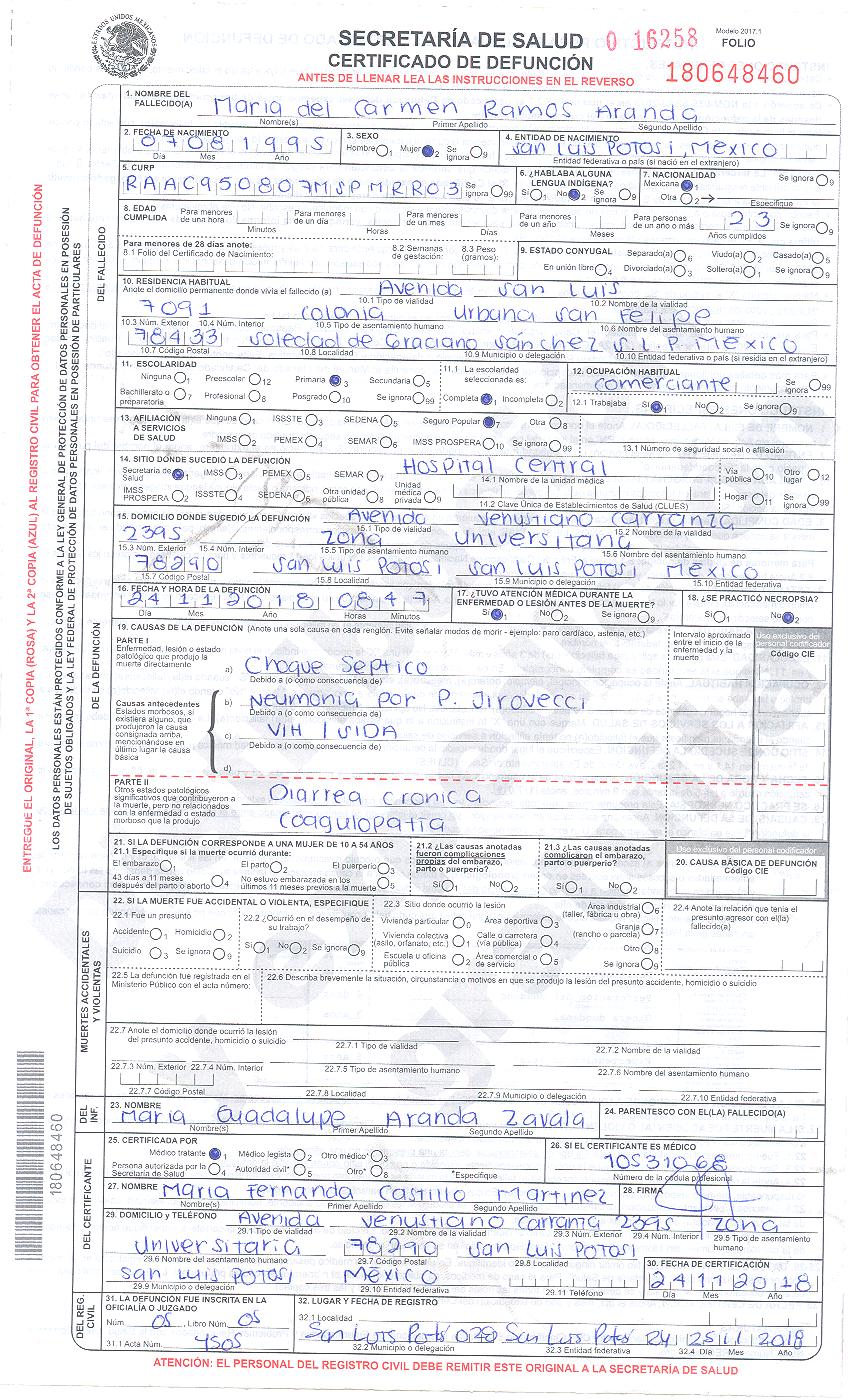 ESTADOS UNIDOS MEXICANOS
SECRETARÍA DE SALUD
CERTIFICADO DE DEFUNCIÓN
ANTES DE LLENAR LEA LAS INSTRUCCIONES EN EL REVERSO
0 16258
Modelo 2017.1
FOLIO
180648460
ENTREGUE EL ORIGINAL, LA 1ª COPIA (ROSA) Y LA 2ª COPIA (AZUL) AL REGISTRO CIVIL PARA OBTENER EL ACTA DE DEFUNCIÓN
LOS DATOS PERSONALES ESTÁN PROTEGIDOS CONFORME A LA LEY GENERAL DE PROTECCIÓN DE DATOS PERSONALES EN POSESIÓN
DE SUJETOS OBLIGADOS Y LA LEY FEDERAL DE PROTECCIÓN DE DATOS PERSONALES EN POSESIÓN DE PARTICULARES
180648460
DEL FALLECIDO
1. NOMBRE DEL FALLECIDO(A) Maria del Carmen Ramos Aranda
Nombre(s) Primer Apellido Segundo Apellido
2. FECHA DE NACIMIENTO 07081995
Día Mes Año
3. SEXO
Hombre 1 Mujer 2 Se ignora 9
4. ENTIDAD DE NACIMIENTO
San Luis Potosi, Mexico
Entidad federativa o país (si nació en el extranjero)
5. CURP
RAAC950807MSPMRR03 Se ignora 99
6. ¿HABLABA ALGUNA LENGUA INDÍGENA?
Sí 1 No 2 Se ignora 9
7. NACIONALIDAD
Mexicana 1 Se ignora 9
Otra 2 Especifique
8. EDAD CUMPLIDA
Para menores de una hora Minutos
Para menores de un día Horas
Para menores de un mes Días
Para menores de un año Meses
Para personas de un año o más 23 Años cumplidos
Se ignora 9
Para menores de 28 días anote:
8.1 Folio del Certificado de Nacimiento:
8.2 Semanas de gestación:
8.3 Peso (gramos):
9. ESTADO CONYUGAL
Separado(a) 6 Viudo(a) 2 Casado(a) 5
En unión libre 4 Divorciado(a) 3 Soltero(a) 1 Se ignora 9
10. RESIDENCIA HABITUAL
Anote el domicilio permanente donde vivía el fallecido (a) Avenida San Luis
10.1 Tipo de vialidad 10.2 Nombre de la vialidad
7091 Colonia Urbana San Felipe
10.3 Núm. Exterior 10.4 Núm. Interior 10.5 Tipo de asentamiento humano 10.6 Nombre del asentamiento humano
78433 Soledad de Graciano Sánchez S.L.P. Mexico
10.7 Código Postal 10.8 Localidad 10.9 Municipio o delegación 10.10 Entidad federativa o país (si residía en el extranjero)
11. ESCOLARIDAD
Ninguna 1 Preescolar 12 Primaria 3 Secundaria 5
Bachillerato o preparatoria 7 Profesional 8 Posgrado 10 Se ignora 99
11.1 La escolaridad seleccionada es:
Completa 1 Incompleta 2
12. OCUPACIÓN HABITUAL
comerciante Se ignora 99
12.1 Trabajaba Sí 1 No 2 Se ignora 9
13. AFILIACIÓN A SERVICIOS DE SALUD
Ninguna 1 ISSSTE 3 SEDENA 5 Seguro Popular 7 Otra 8
IMSS 2 PEMEX 4 SEMAR 6 IMSS PROSPERA 10 Se ignora 99
13.1 Número de seguridad social o afiliación
DE LA DEFUNCIÓN
14. SITIO DONDE SUCEDIÓ LA DEFUNCIÓN Hospital Central
Secretaría de Salud 1 IMSS 3 PEMEX 5 SEMAR 7
14.1 Nombre de la unidad médica
IMSS PROSPERA 2 ISSSTE 4 SEDENA 6 Otra unidad pública 8 Unidad médica privada 9
14.2 Clave Única de Establecimientos de Salud (CLUES)
Vía pública 10 Otro lugar 12
Hogar 11 Se ignora 99
15. DOMICILIO DONDE SUCEDIÓ LA DEFUNCIÓN Avenida Venustiano Carranza
15.1 Tipo de vialidad 15.2 Nombre de la vialidad
2395 Zona Universitaria
15.3 Núm. Exterior 15.4 Núm. Interior 15.5 Tipo de asentamiento humano 15.6 Nombre del asentamiento humano
78290 San Luis Potosi San Luis Potosi Mexico
15.7 Código Postal 15.8 Localidad 15.9 Municipio o delegación 15.10 Entidad federativa
16. FECHA Y HORA DE LA DEFUNCIÓN
24112018 0847
Día Mes Año Horas Minutos
17. ¿TUVO ATENCIÓN MÉDICA DURANTE LA ENFERMEDAD O LESIÓN ANTES DE LA MUERTE?
Sí 1 No 2 Se ignora 9
18. ¿SE PRACTICÓ NECROPSIA?
Sí 1 No 2
19. CAUSAS DE LA DEFUNCIÓN (Anote una sola causa en cada renglón. Evite señalar modos de morir - ejemplo: paro cardíaco, astenia, etc.)
Intervalo aproximado entre el inicio de la enfermedad y la muerte
Uso exclusivo del personal codificador
Código CIE
PARTE I
Enfermedad, lesión o estado patológico que produjo la muerte directamente
a) Choque Septico
Debido a (o como consecuencia de)
Causas antecedentes
Estados morbosos, si existiera alguno, que produjeron la causa consignada arriba, mencionándose en último lugar la causa básica
b) Neumonia por P. Jirovecci
Debido a (o como consecuencia de)
c) VIH / SIDA
Debido a (o como consecuencia de)
d)
PARTE II
Otros estados patológicos significativos que contribuyeron a la muerte, pero no relacionados con la enfermedad o estado morboso que la produjo
Diarrea cronica
Coagulopatia
21. SI LA DEFUNCIÓN CORRESPONDE A UNA MUJER DE 10 A 54 AÑOS
21.1 Especifique si la muerte ocurrió durante:
El embarazo 1 El parto 2 El puerperio 3
43 días a 11 meses después del parto o aborto 4 No estuvo embarazada en los últimos 11 meses previos a la muerte 5
21.2 ¿Las causas anotadas fueron complicaciones propias del embarazo, parto o puerperio?
Sí 1 No 2
21.3 ¿Las causas anotadas complicaron el embarazo, parto o puerperio?
Sí 1 No 2
Uso exclusivo del personal codificador
20. CAUSA BÁSICA DE DEFUNCIÓN
Código CIE
MUERTES ACCIDENTALES Y VIOLENTAS
22. SI LA MUERTE FUE ACCIDENTAL O VIOLENTA, ESPECIFIQUE
22.1 Fue un presunto
Accidente 1 Homicidio 2
Suicidio 3 Se ignora 9
22.2 ¿Ocurrió en el desempeño de su trabajo?
Sí 1 No 2 Se ignora 9
22.3 Sitio donde ocurrió la lesión
Vivienda particular 0 Área deportiva 3 Área industrial (taller, fábrica u obra) 6
Vivienda colectiva (asilo, orfanato, etc.) 1 Calle o carretera (vía pública) 4 Granja (rancho o parcela) 7
Escuela u oficina pública 2 Área comercial o de servicio 5 Otro 8
Se ignora 9
22.4 Anote la relación que tenía el presunto agresor con el(la) fallecido(a)
22.5 La defunción fue registrada en el Ministerio Público con el acta número:
22.6 Describa brevemente la situación, circunstancia o motivos en que se produjo la lesión del presunto accidente, homicidio o suicidio
22.7 Anote el domicilio donde ocurrió la lesión del presunto accidente, homicidio o suicidio
22.7.1 Tipo de vialidad 22.7.2 Nombre de la vialidad
22.7.3 Núm. Exterior 22.7.4 Núm. Interior 22.7.5 Tipo de asentamiento humano 22.7.6 Nombre del asentamiento humano
22.7.7 Código Postal 22.7.8 Localidad 22.7.9 Municipio o delegación 22.7.10 Entidad federativa
DEL INF.
23. NOMBRE Maria Guadalupe Aranda Zavala
Nombre(s) Primer Apellido Segundo Apellido
24. PARENTESCO CON EL(LA) FALLECIDO(A)
DEL CERTIFICANTE
25. CERTIFICADA POR
Médico tratante 1 Médico legista 2 Otro médico* 3
Persona autorizada por la Secretaría de Salud 4 Autoridad civil* 5 Otro* 8 *Especifique
26. SI EL CERTIFICANTE ES MÉDICO
10531068
Número de la cédula profesional
27. NOMBRE Maria Fernanda Castillo Martinez
Nombre(s) Primer Apellido Segundo Apellido
28. FIRMA
29. DOMICILIO y TELÉFONO Avenida Venustiano Carranza 2395 Zona
29.1 Tipo de vialidad 29.2 Nombre de la vialidad 29.3 Núm. Exterior 29.4 Núm. Interior 29.5 Tipo de asentamiento humano
Universitaria 78290 San Luis Potosi
29.6 Nombre del asentamiento humano 29.7 Código Postal 29.8 Localidad
San Luis Potosi Mexico
29.9 Municipio o delegación 29.10 Entidad federativa 29.11 Teléfono
30. FECHA DE CERTIFICACIÓN
24112018
Día Mes Año
DEL REG. CIVIL
31. LA DEFUNCIÓN FUE INSCRITA EN LA OFICIALÍA O JUZGADO
Núm. 05 Libro Núm. 05
31.1 Acta Núm. 4505
32. LUGAR Y FECHA DE REGISTRO
32.1 Localidad
San Luis Potosí 028 San Luis Potosí 24 25 11 2018
32.2 Municipio o delegación 32.3 Entidad federativa 32.4 Día Mes Año
ATENCIÓN: EL PERSONAL DEL REGISTRO CIVIL DEBE REMITIR ESTE ORIGINAL A LA SECRETARÍA DE SALUD